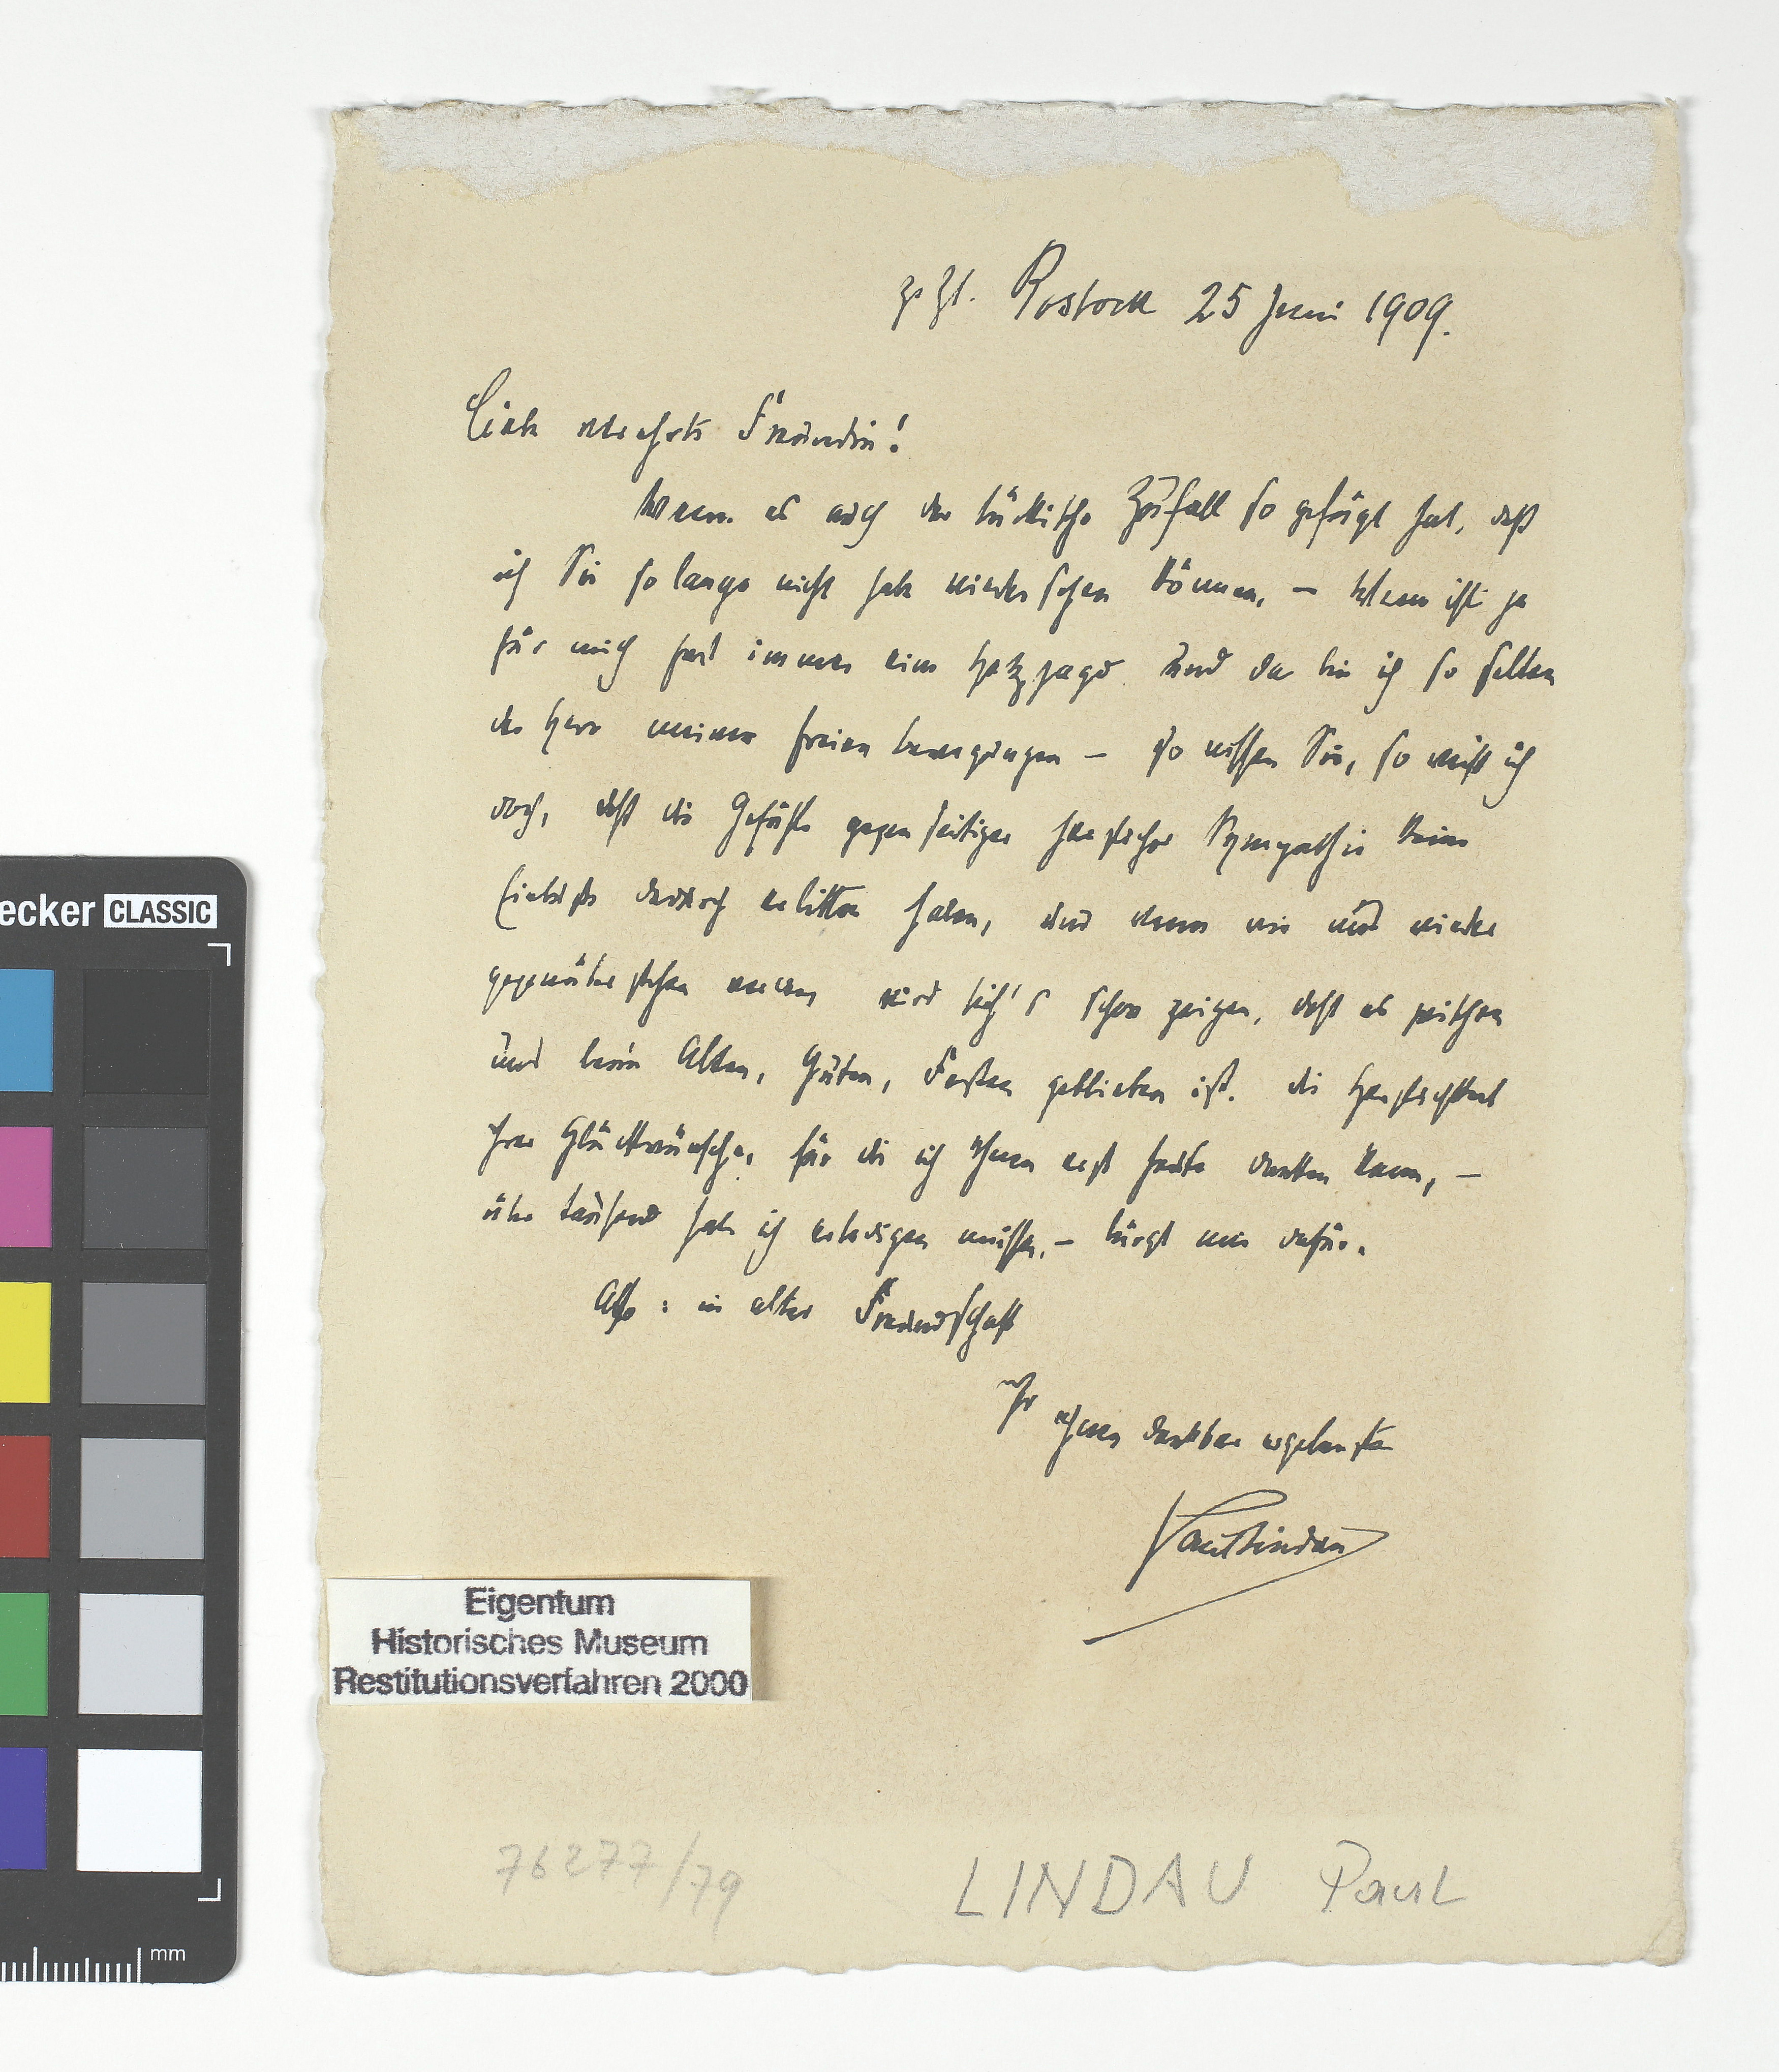 z. Zt. Rostock 25 Juni 1909.
Liebe verehrte Freundin!
Wenn es auch der tückische Zufall so gefügt hat, daß
ich Sie so lange nicht habe wiedersehen können, – Wien ist ja
für mich fast immer eine Hetzjagd und da bin ich so selten
der Herr meiner freien Bewegungen – so wissen Sie, so weiß ich
doch, daß die Gefühle gegenseitiger herzlicher Sympathie keine
Einbuße dadurch erlitten haben, und wenn wir uns wieder
gegenüberstehen werden wird sich's schon zeigen, daß es zwischen
uns beim Alten, Guten, Festen geblieben ist. Die Herzlichkeit
Ihrer Glückwünsche, für die ich Ihnen erst heute danken kann, –
über tausend habe ich erledigen müssen, – bürgt mir dafür.
Also: in alter Freundschaft
Ihr Ihnen dankbar ergebenster
Paul Lindau
Eigentum
Historisches Museum
Restitutionsverfahren 2000
76277/79
LINDAU Paul
ecker CLASSIC
mm